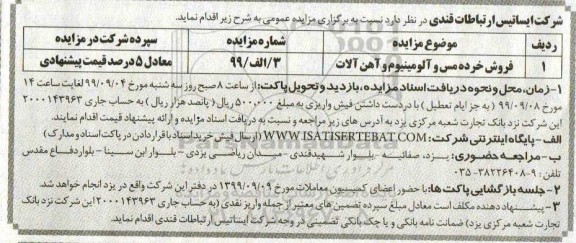 شرکت ایساتیس ارتباطات قندی در نظر دارد نسبت به برگزاری مزایده عمومی به شرح زیر اقدام نماید.
ردیف موضوع مزایده شماره مزایده سپرده شرکت در مزایده
۱ فروش خرده مس و آلومینیوم و آهن آلات ۳/الف/۹۹ معادل ۵ درصد قیمت پیشنهادی
۱-زمان، محل و نحوه دریافت اسناد مزایده، بازدید و تحویل پاکت: از ساعت ۸ صبح روز سه شنبه مورخ ۹۹/۰۹/۰۴ لغایت ساعت ۱۴
مورخ ۹۹/۰۹/۰۸ (به جز ایام تعطیل) با در دست داشتن فیش واریزی به مبلغ ۵۰۰/۰۰۰ ریال (پانصد هزار ریال) به حساب جاری ۲۰۰۰۱۴۳۹۶۳
این شرکت نزد بانک تجارت شعبه مرکزی یزد به آدرس های زیر مراجعه و نسبت به دریافت اسناد مزایده و ارائه پیشنهاد قیمت اقدام نمایند.
الف-پایگاه اینترنتی شرکت: WWW.ISATISERTEBAT.COM (ارسال فیش خرید اسناد با قرار دادن در پاکت اسناد و مدارک)
ب-مراجعه حضوری: یزد، صفائیه - بلوار شهید قندی - میدان ریاضی یزدی - بلوار ابن سینا - بلوار دفاع مقدس
تلفن: ۹-۳۸۲۲۶۴۰۸-۰۳۵
۲-جلسه بازگشایی پاکت ها: با حضور اعضای کمیسیون معاملات مورخ ۱۳۹۹/۰۹/۰۹ در دفتر این شرکت واقع در یزد انجام خواهد شد.
۳-پیشنهاد دهنده مکلف است معادل مبلغ سپرده تضمین های معتبر از جمله واریز نقدی (به حساب جاری ۲۰۰۰۱۴۳۹۶۳ این شرکت نزد بانک
تجارت شعبه مرکزی یزد) ضمانت نامه بانکی و یا چک بانکی تضمینی در وجه شرکت ایساتیس ارتباطات قندی اقدام نماید.